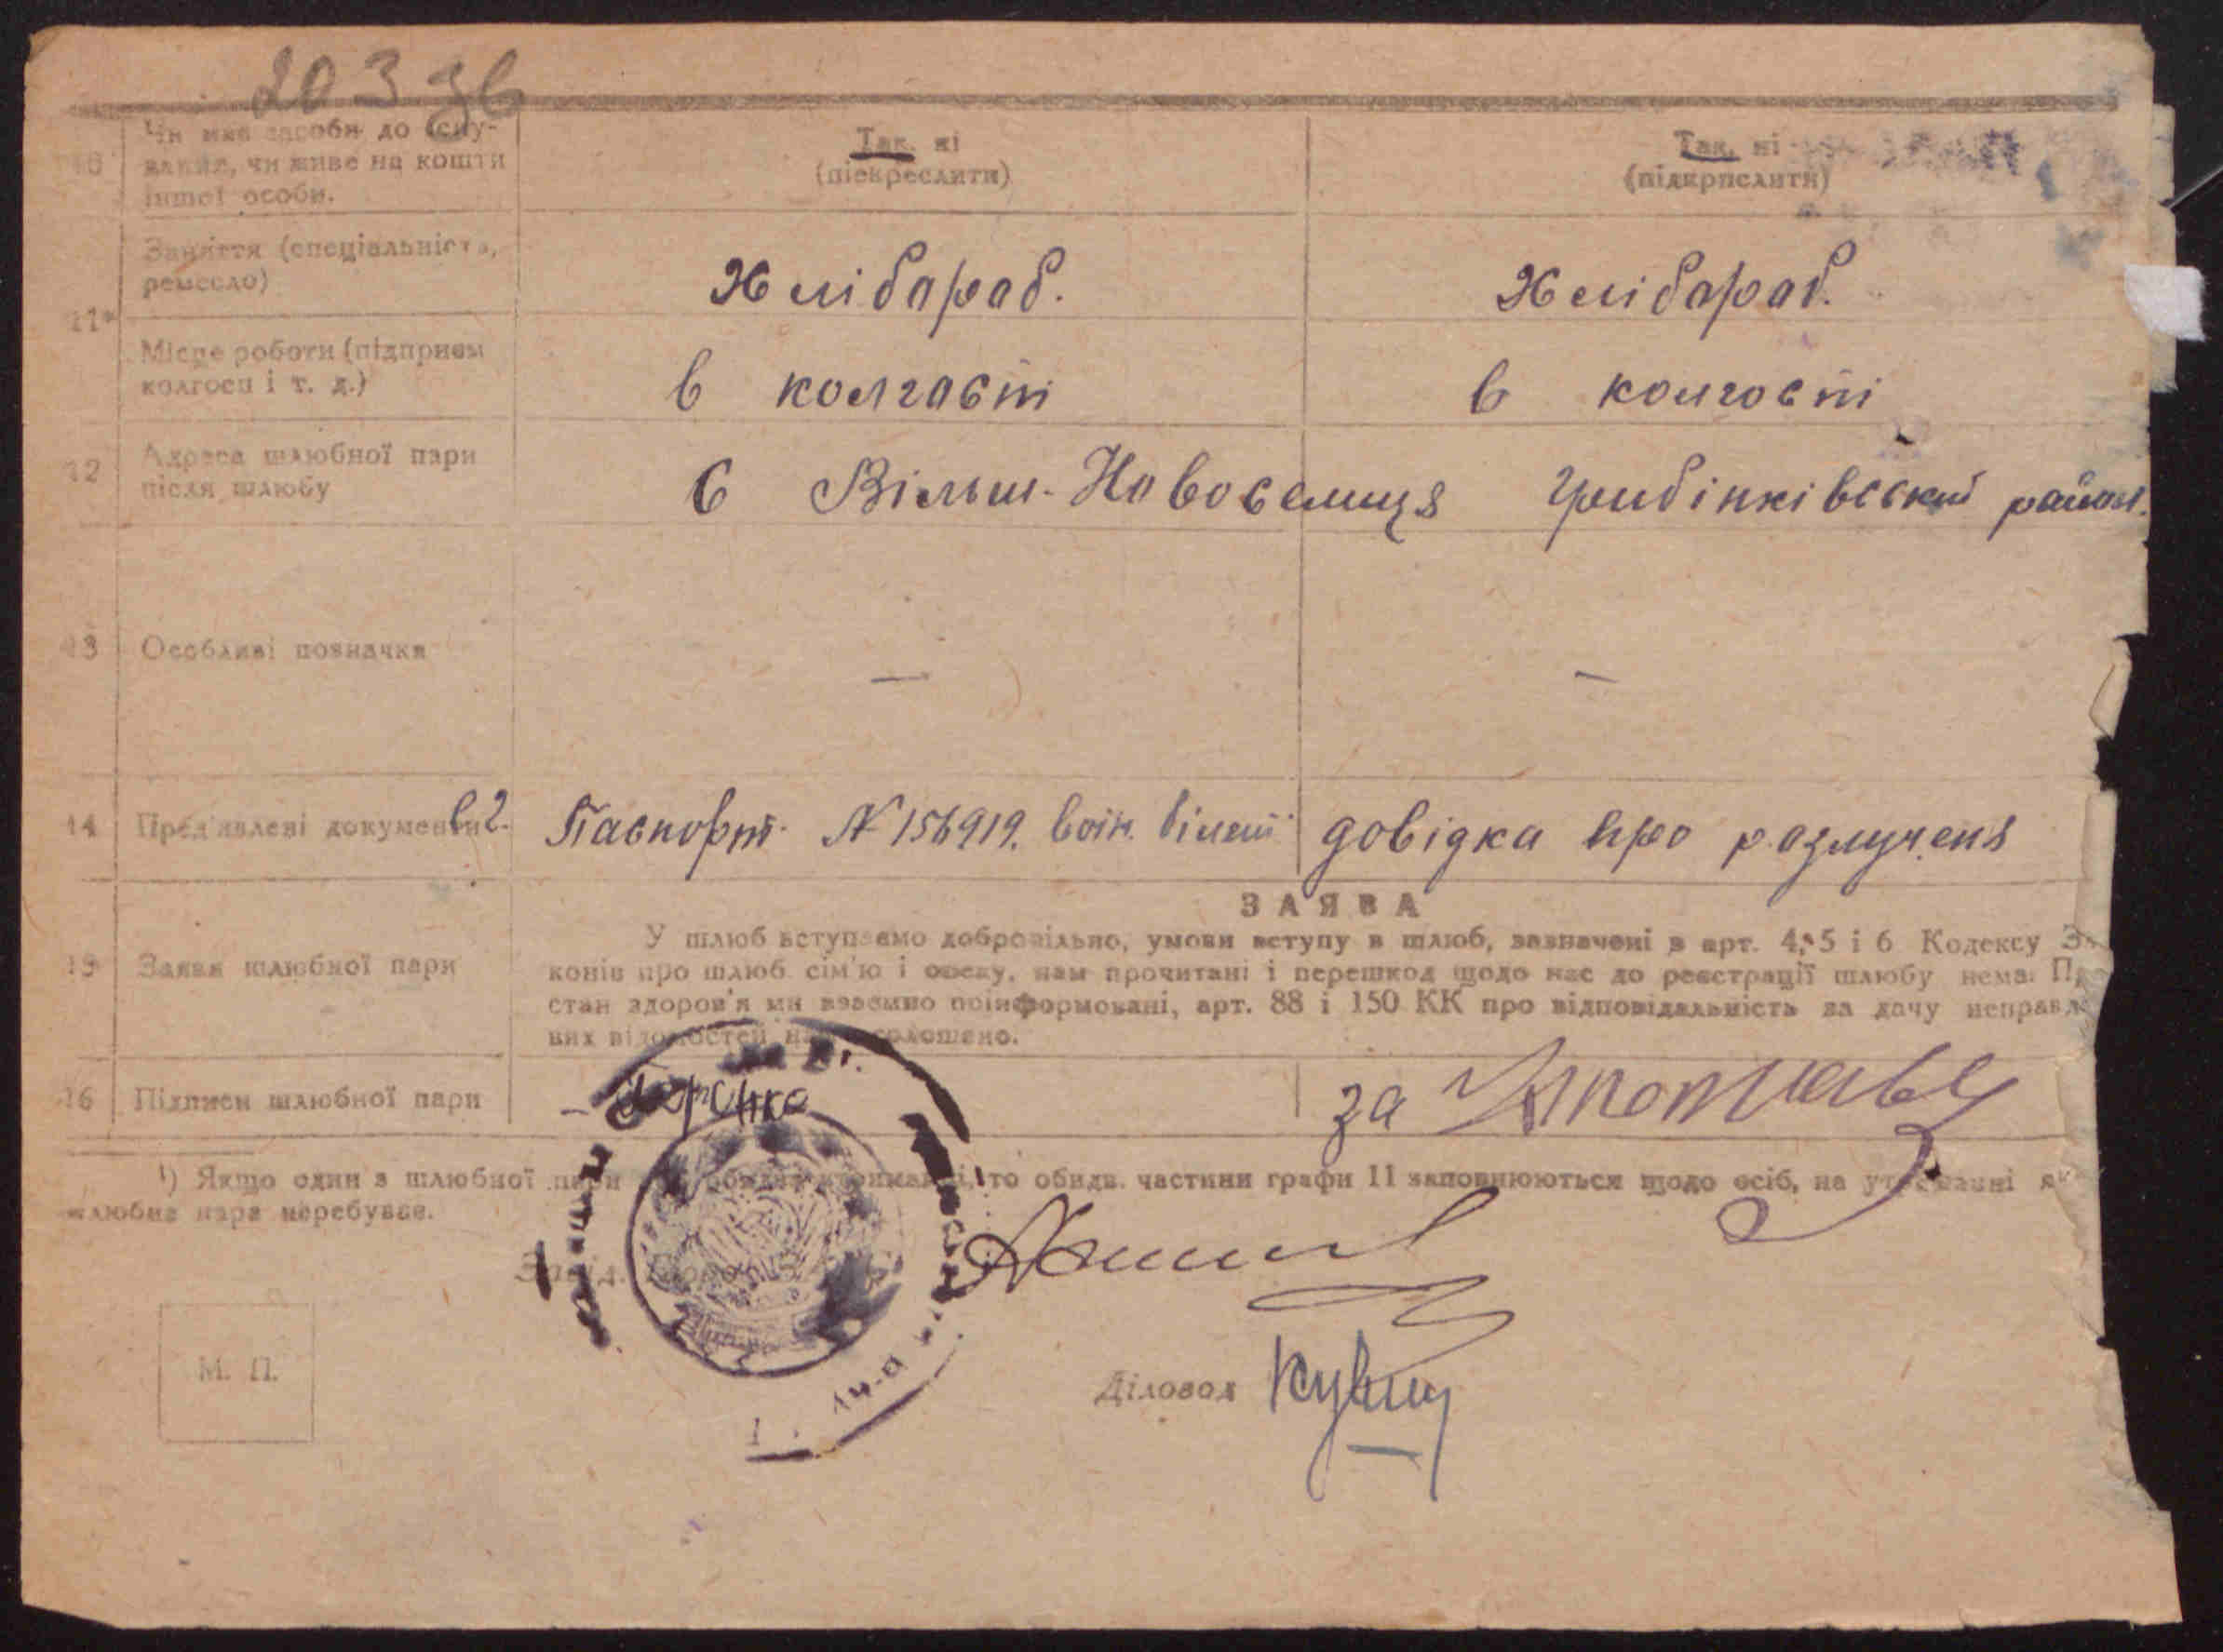 203 зв
10 Чи має засоби до існу-
вання, чи живе на кошти
іншої особи.
Так, ні
(підкреслити)
Так, ні
(підкрислити)
11
Заняття (спеціальність,
ремесло)
Хлібараб.
Хлібараб.
Місце роботи (підприєм
колгосп і т. д.)
в колгасті
в колгості
12 Адреса шлюбної пари
після шлюбу
с Вільш-Новоселиця Гребінківський район.
13 Особливі позначки — —
14 Пред'явлені документи
Паспорт № 156919. воін. білет
довідка про разлученя
ЗАЯВА
15 Заява шлюбної пари
У шлюб вступаємо добровільно, умови вступу в шлюб, зазначені в арт. 4, 5 і 6 Кодексу За
конів про шлюб сім'ю і опеку, нам прочитані і перешкод щодо нас до реєстрації шлюбу нема. Пр
стан здоров'я ми взаємно поінформовані, арт. 88 і 150 КК про відповідальність за дачу неправд
них відомостей на олошено.
16 Підписи шлюбної пари
за
¹) Якщо один з шлюбної пари то обидв. частини графи 11 заповнюються щодо осіб, на утриманні як
шлюбна пара перебуває.
М. П.
Діловод